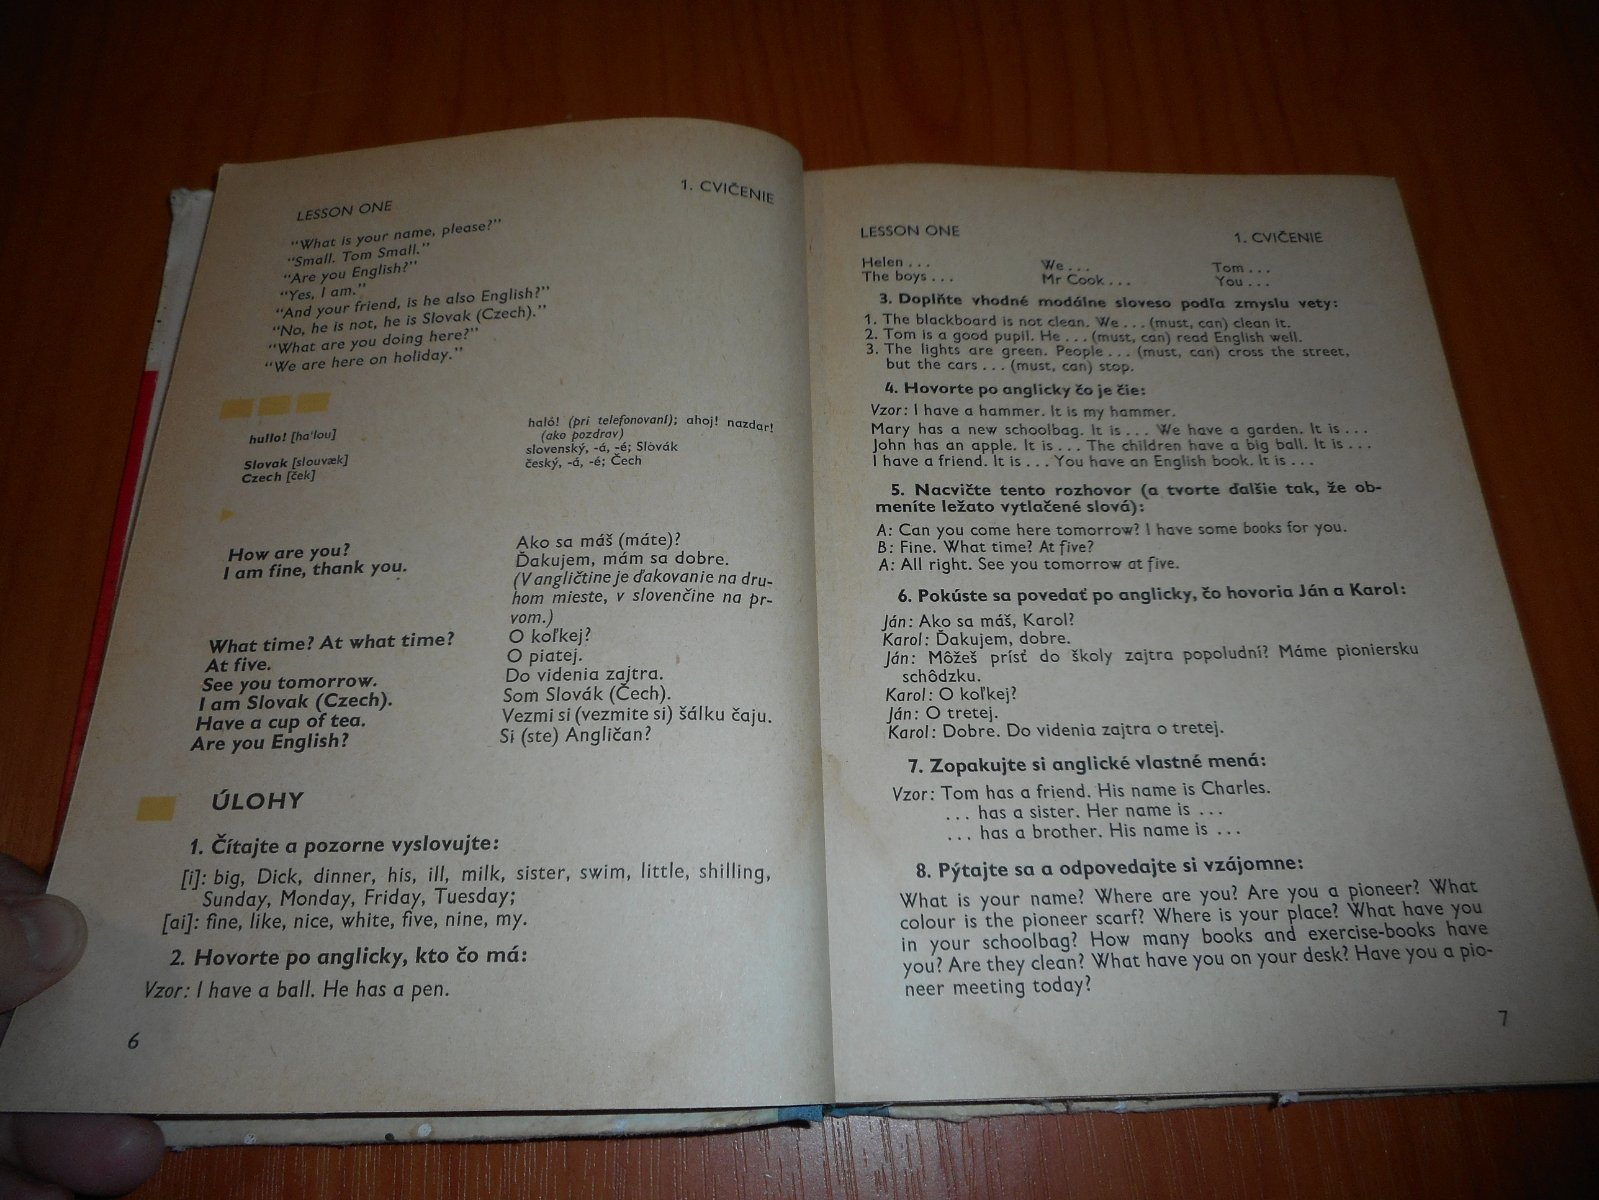 LESSON ONE
1. CVIČENIE
“What is your name, please?”
“Small. Tom Small.”
“Are you English?”
“Yes, I am.”
“And your friend, is he also English?”
“No, he is not, he is Slovak (Czech).”
“What are you doing here?”
“We are here on holiday.”
hullo! [ha'lou]
haló! (pri telefonovaní); ahoj! nazdar!
(ako pozdrav)
Slovak [slouvæk]
slovenský, -á, -é; Slovák
Czech [ček]
český, -á, -é; Čech
How are you?
Ako sa máš (máte)?
I am fine, thank you.
Ďakujem, mám sa dobre.
(V angličtine je ďakovanie na dru-
hom mieste, v slovenčine na pr-
vom.)
What time? At what time?
O koľkej?
At five.
O piatej.
See you tomorrow.
Do videnia zajtra.
I am Slovak (Czech).
Som Slovák (Čech).
Have a cup of tea.
Vezmi si (vezmite si) šálku čaju.
Are you English?
Si (ste) Angličan?
ÚLOHY
1. Čítajte a pozorne vyslovujte:
[i]: big, Dick, dinner, his, ill, milk, sister, swim, little, shilling,
Sunday, Monday, Friday, Tuesday;
[ai]: fine, like, nice, white, five, nine, my.
2. Hovorte po anglicky, kto čo má:
Vzor: I have a ball. He has a pen.
6
LESSON ONE
1. CVIČENIE
Helen . . . We . . . Tom . . .
The boys . . . Mr Cook . . . You . . .
3. Doplňte vhodné modálne sloveso podľa zmyslu vety:
1. The blackboard is not clean. We . . . (must, can) clean it.
2. Tom is a good pupil. He . . . (must, can) read English well.
3. The lights are green. People . . . (must, can) cross the street,
but the cars . . . (must, can) stop.
4. Hovorte po anglicky čo je čie:
Vzor: I have a hammer. It is my hammer.
Mary has a new schoolbag. It is . . . We have a garden. It is . . .
John has an apple. It is . . . The children have a big ball. It is . . .
I have a friend. It is . . . You have an English book. It is . . .
5. Nacvičte tento rozhovor (a tvorte ďalšie tak, že ob-
meníte ležato vytlačené slová):
A: Can you come here tomorrow? I have some books for you.
B: Fine. What time? At five?
A: All right. See you tomorrow at five.
6. Pokúste sa povedať po anglicky, čo hovoria Ján a Karol:
Ján: Ako sa máš, Karol?
Karol: Ďakujem, dobre.
Ján: Môžeš prísť do školy zajtra popoludní? Máme pioniersku
schôdzku.
Karol: O koľkej?
Ján: O tretej.
Karol: Dobre. Do videnia zajtra o tretej.
7. Zopakujte si anglické vlastné mená:
Vzor: Tom has a friend. His name is Charles.
. . . has a sister. Her name is . . .
. . . has a brother. His name is . . .
8. Pýtajte sa a odpovedajte si vzájomne:
What is your name? Where are you? Are you a pioneer? What
colour is the pioneer scarf? Where is your place? What have you
in your schoolbag? How many books and exercise-books have
you? Are they clean? What have you on your desk? Have you a pio-
neer meeting today?
7